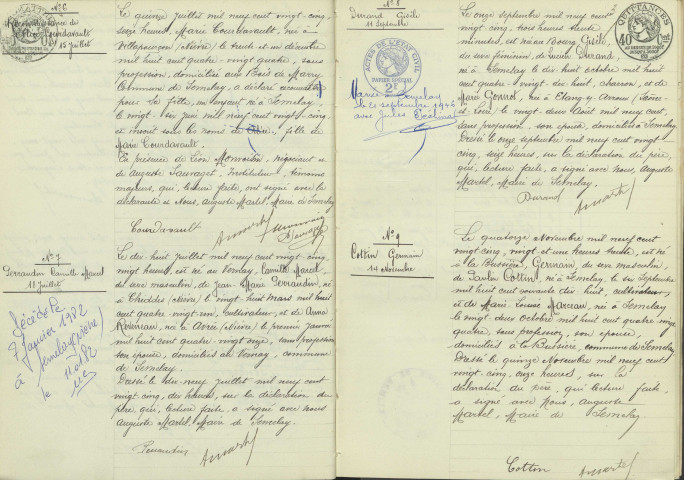 N° 6
Reconnaissance de
Courdavault
15 Juillet
Le quinze Juillet mil neuf cent vingt-cinq,
seize heures, Marie Courdavault, née à
Villapourçon (Nièvre) le trente et un décembre
mil huit cent quatre-vingt quatre, sans
profession, domiciliée aux Bois de Marry
Commune de Semelay, a déclaré reconnaître
pour sa fille, un enfant né à Semelay,
le vingt-six juin mil neuf cent vingt-cinq
et inscrit sous les noms de fille de
Marie Courdavault.
En présence de Léon négociant et
de Auguste Sauvaget, Instituteur, témoins
majeurs, qui, lecture faite, ont signé avec la
déclarante et Nous, Auguste Martel, Maire de Semelay
Courdavault
N° 7
Perraudin Camille Marcel
18 Juillet
Décédé le
7 Janvier 1982
à Semelay (Nièvre)
le 11.01.82
Le dix-huit Juillet mil neuf cent vingt-cinq,
vingt heures, est né au Vernay, Camille Marcel
du sexe masculin, de Jean-Marie Perraudin, né
à Chiddes (Nièvre) le vingt-huit Mars mil huit
cent quatre-vingt-un, cultivateur, et de Anna
née à Avrée (Nièvre) le premier Janvier
mil huit cent quatre-vingt-onze, sans profession
son épouse, domiciliés au Vernay, commune
de Semelay.
Dressé le dix-neuf Juillet mil neuf cent
vingt-cinq, dix heures, sur la déclaration du
père, qui, lecture faite, a signé avec nous
Auguste Martel, Maire de Semelay.
Perraudin
N° 8
Durand Gisèle
11 Septembre
ACTES DE L'ÉTAT CIVIL
PAPIER SPÉCIAL
2F
Mariée à Semelay
le septembre 1946
avec Jules
Le onze septembre mil neuf cent
vingt-cinq, trois heures trente
minutes, est née au Bourg Gisèle,
du sexe féminin, de Lucien Durand,
né à Semelay le dix-huit octobre mil huit
cent quatre-vingt-dix-huit, charron, et de
Marie née à Etang-s-Arroux (Saône-
et-Loire) le vingt-deux Août mil neuf cent,
sans profession, son épouse, domiciliés à Semelay.
Dressé le onze septembre mil neuf cent vingt-
cinq, seize heures, sur la déclaration du père,
qui, lecture faite, a signé avec nous, Auguste
Martel, Maire de Semelay.
Durand
QUITTANCES
40
N° 9
Cottin Germain
14 Novembre
Le quatorze Novembre mil neuf cent
vingt-cinq, vingt-et-une heures trente, est né
à la Bussière, Germain, du sexe masculin,
de Paulin Cottin, né à Semelay, le six Septembre
mil huit cent quatre-vingt-dix huit, cultivateur
et de Marie Louise née à Semelay
le vingt-deux octobre mil huit cent quatre-vingt
quatre, sans profession, son épouse,
domiciliés à la Bussière, commune de Semelay
Dressé le quinze Novembre mil neuf cent
vingt-cinq, onze heures, sur la
déclaration du père, qui lecture faite,
a signé avec nous, Auguste
Martel, Maire de Semelay.
Cottin